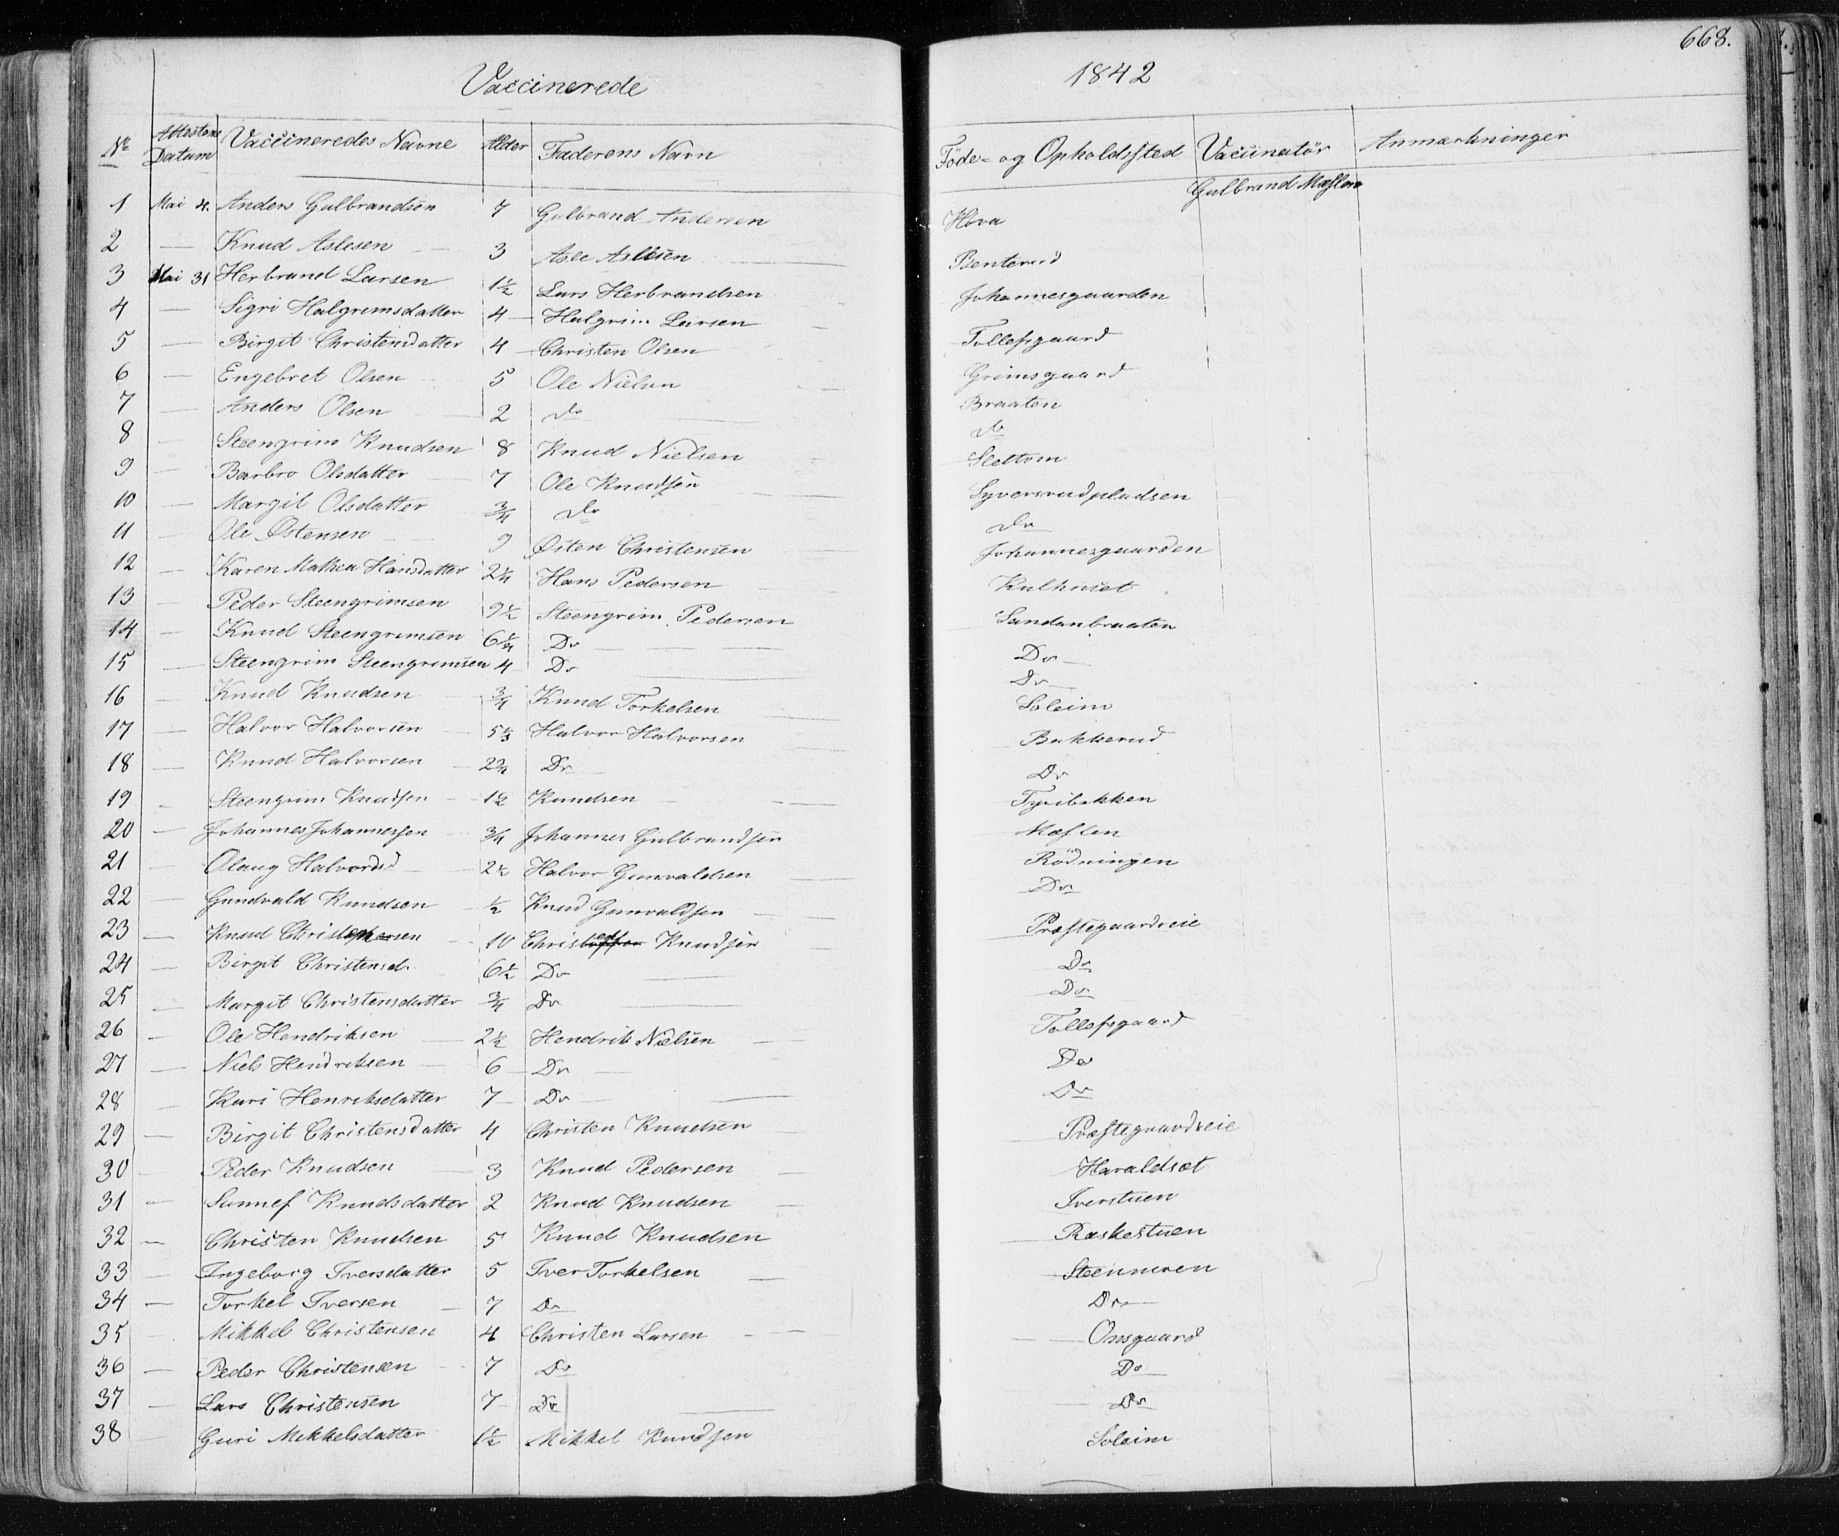 668.
Vaccinerede 1842
No Attestens Datum Vaccineredes Navne Alder Faderens Navn Føde- og Opholdssted Vaccinatør Anmærkninger
1 Mai 4. Anders Gulbrandsen 7 Gulbrand Andersen Hova Gulbrand Mæslen
2 — Knud Aslesen 3 Asle Aslesen Benterud
3 Mai 31 Herbrand Larsen 1½ Lars Herbrandsen Johannesgaarden
4 — Sigri Halgrimsdatter 4 Halgrim Larsen Tollefsgaard
5 — Birgit Christensdatter 4 Christen Olsen Grimsgaard
6 — Engebret Olsen 5 Ole Nielsen Braaten
7 — Anders Olsen 2 do do
8 — Steengrim Knudsen 8 Knud Nielsen Slettom
9 — Barbro Olsdatter 7 Ole Knudsen Syversrudpladsen
10 — Margit Olsdatter ¾ do do
11 — Ole Østensen 9 Østen Christensen Johannesgaarden
12 — Karen Mathea Hansdatter 2¼ Hans Pedersen Kulhuset
13 — Peder Steengrimsen 9½ Steengrim Pedersen Sandanbraaten
14 — Knud Steengrimsen 6¼ Do Do
15 — Steengrim Steengrimsen 4 Do Do
16 — Knud Knudsen ¾ Knud Torkelsen Soleim
17 — Halvor Halvorsen 5⅓ Halvor Halvorsen Bakkerud
18 — Knud Halvorsen 2¾ Do Do
19 — Steengrim Knudsen Knudsen Tyribakken
20 — Johannes Johannessen ¾ Johannes Gulbrandsen Mæslen
21 — Olaug Halvorsd 2½ Halvor Gunvaldsen Rødningen
22 — Gundvald Knudsen ½ Knud Gunvaldsen Do
23 — Knud 10 Knudsen Præstegaardseie
24 — Birgit Christensd. 6½ Do Do
25 — Margit Christensdatter ¾ Do Do
26 — Ole Hendriksen 2½ Hendrik Nielsen Tollefsgaard
27 — Niels Hendriksen 6 Do Do
28 — Kari Henriksdatter 7 Do Do
29 — Birgit Christensdatter 4 Christen Knudsen Præstegaardseie
30 — Peder Knudsen 3 Knud Pedersen Haraldset
31 — Sunnef Knudsdatter 2 Knud Knudsen Iverstuen
32 — Christen Knudsen 5 Knud Knudsen Raskestuen
33 — Ingeborg Iversdatter 5 Iver Torkelsen Steenmoen
34 — Torkel Iversen 7 Do Do
35 Mikkel Christensen 4 Christen Larsen Onsgaard
36 — Peder Christensen 7 Do Do
37 — Lars Christensen 7 Do Do
38 Guri Mikkelsdatter 1½ Mikkel Knudsen Soleim